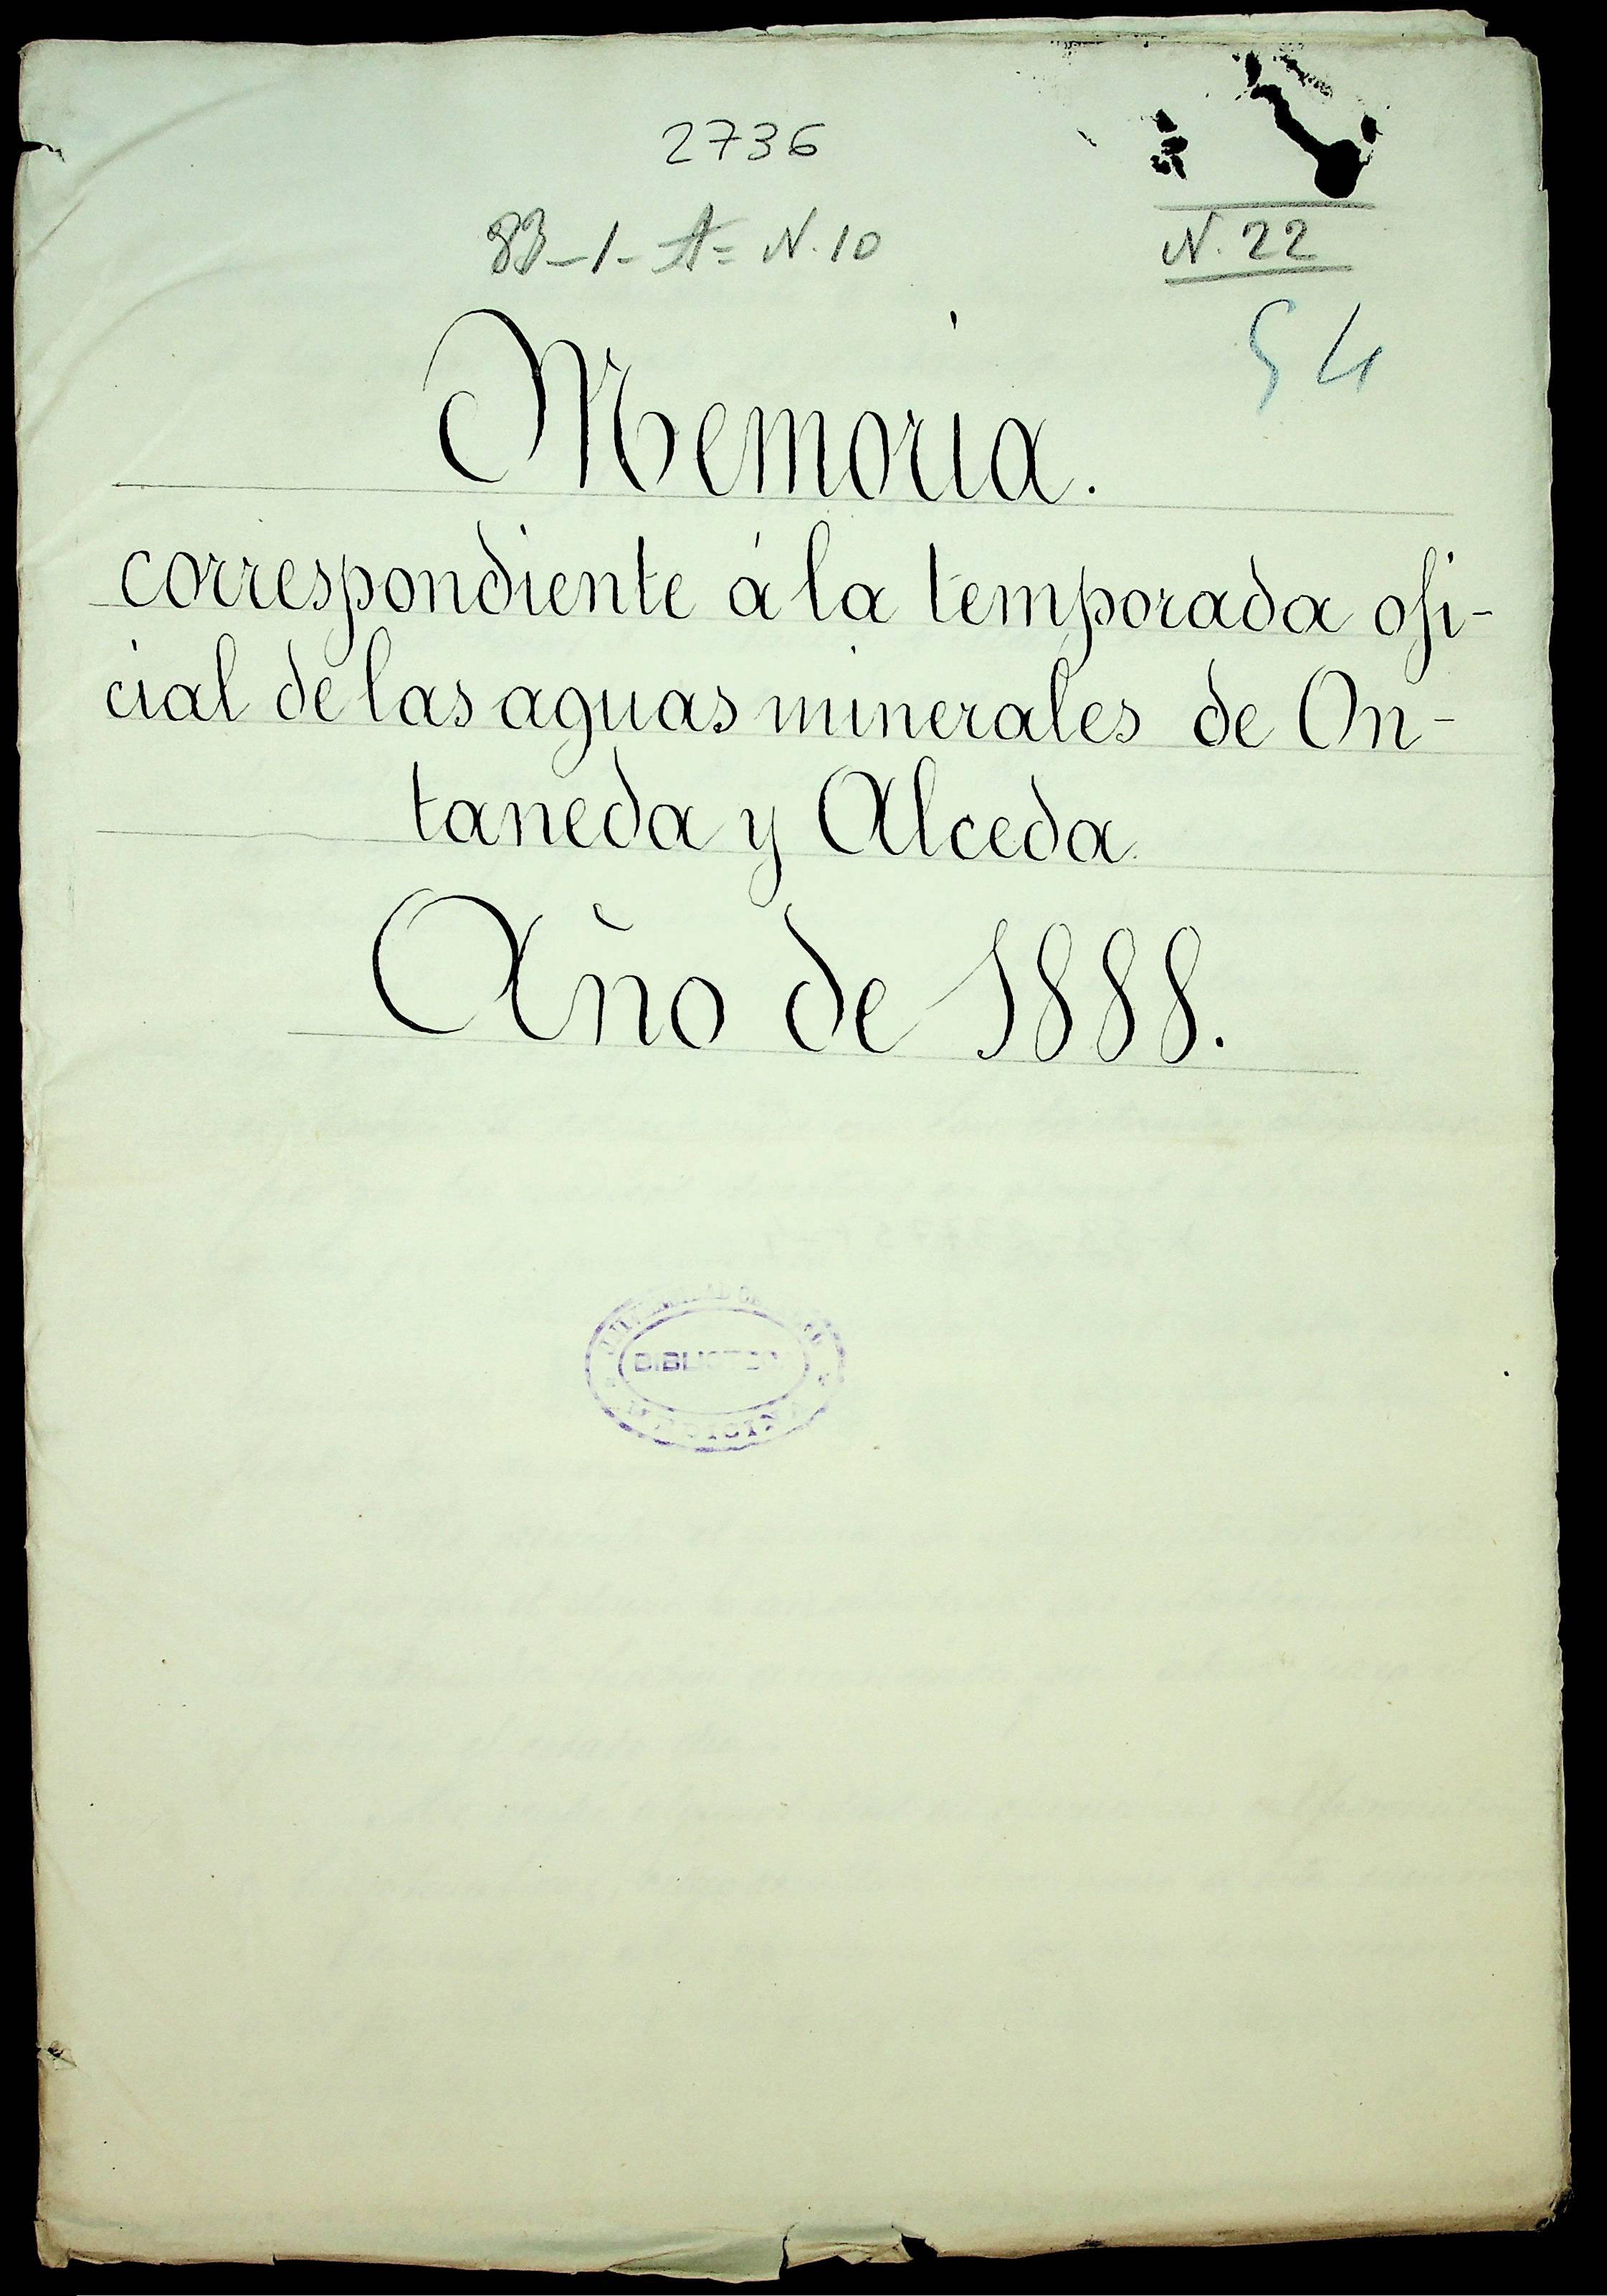 2736
83-1-A= N. 10
N. 22
54
Memoria.
correspondiente á la temporada ofi-
cial de las aguas minerales de On-
taneda y Alceda.
Año de 1888.
BIBLIOTECA
MEDICINA